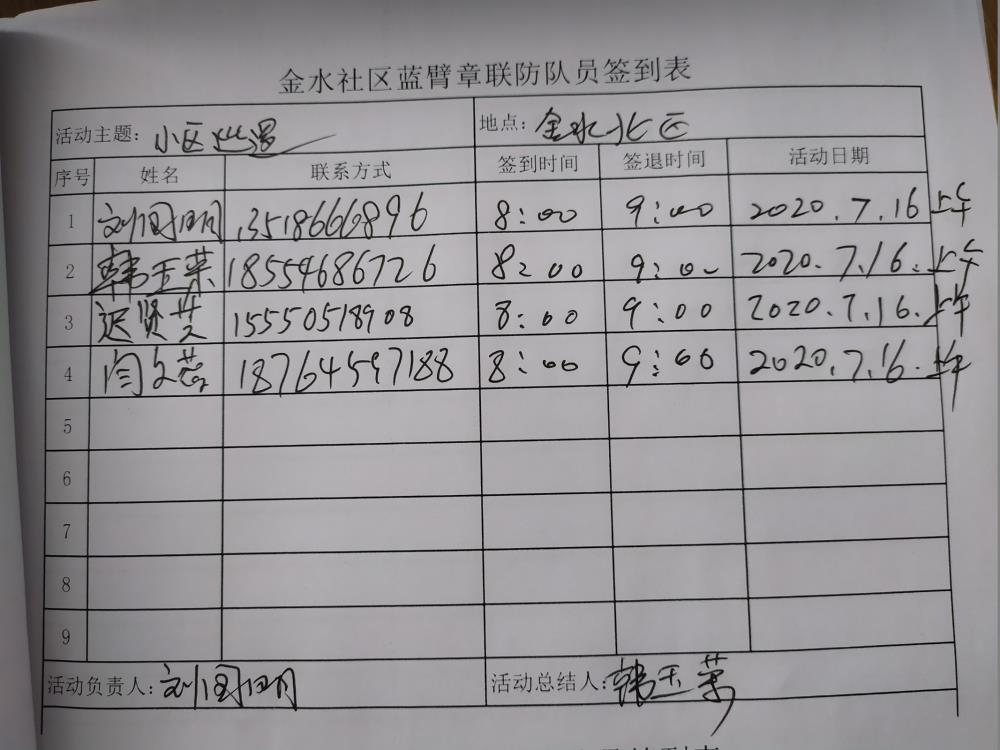 金水社区蓝臂章联防队员签到表
活动主题: 小区巡逻 地点: 金水北区
序号 姓名 联系方式 签到时间 签退时间 活动日期
1 刘国明 13518666896 8:00 9:00 2020.7.16 上午
2 韩玉荣 18554686726 8:00 9:00 2020.7.16. 上午
3 迟贤芝 15550518908 8:00 9:00 2020.7.16. 上午
4 闫文蕊 18764597188 8:00 9:00 2020.7.16. 上午
5
6
7
8
9
活动负责人: 刘国明 活动总结人: 韩玉荣